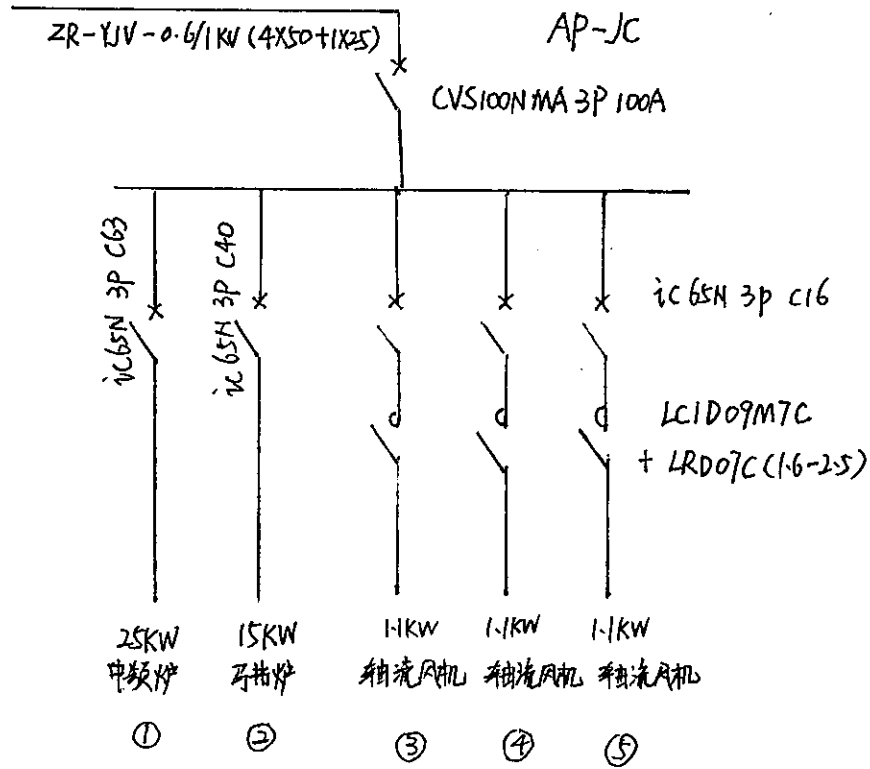 ZR-YJV-0.6/1KV (4X50+1X25)
AP-JC
CVS100NMA 3P 100A
iC65N 3P C63
iC65N 3P C40
iC65N 3P C16
LC1D09M7C
+ LRD07C(1.6-2.5)
25KW
中频炉
①
15KW
马沸炉
②
1.1KW
轴流风机
③
1.1KW
轴流风机
④
1.1KW
轴流风机
⑤